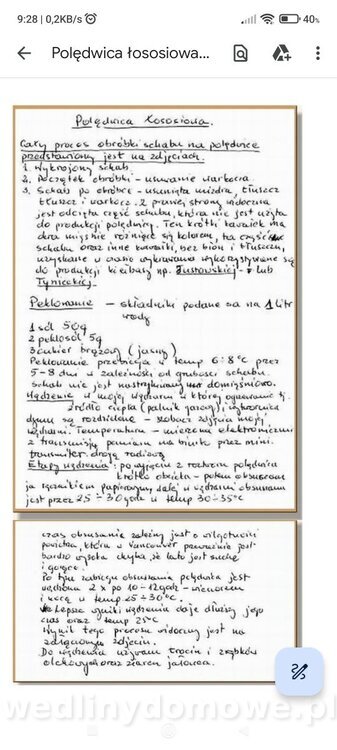 9:28 | 0,2KB/s
40%
Polędwica łososiowa...
Polędwica Łososiowa.
Cały proces obróbki schabu na polędwicę
przedstawiony jest na zdjęciach.
1. Wykrojony schab.
2. Początek obróbki - usuwanie warkocza.
3. Schab po obróbce - usunięta mizdra, tłuszcz
tłuszcz i warkocz. z prawej strony widoczna
jest odcięta część schabu, która nie jest użyta
do produkcji polędwicy. Ten krótki kawałek ma
dwa mięśnie różniące się kolorem, ta część
schabu oraz inne kawałki, bez błon i tłuszczu,
uzyskane w czasie wykrawania wykorzystywane są
do produkcji kiełbasy np. Żustowskiej lub
Tynieckiej.
Peklowanie - składniki podane są na 1 litr
wody
1 sól 50g
2 peklosól 5g
3 cukier brązowy (jasny)
Peklowanie przebiega w temp 6÷8°C przez
5-8 dni w zależności od grubości schabu.
Schab nie jest nastrzykiwany domięśniowo.
Wędzenie w mojej wędzarni w której ogrzewanie tj.
źródło ciepła (palnik gazowy) i wytwornica
dymu są rozdzielone - zobacz zdjęcia mojej
wędzarni. Temperatura - mierzona elektronicznie
z transmisją pomiaru na biurko przez mini
transmiter drogą radiową
Etapy wędzenia: po wyjęciu z roztworu polędwica
krótko obcieka - potem obsuszam
ją ręcznikiem papierowym, dalej w wędzarni obsuszana
jest przez 25-30 godz w temp 30-35°C
czas obsuszania zależny jest od wilgotności
powietrza, która w Vancouver przeważnie jest
bardzo wysoka chyba, że lato jest suche
i gorące.
Po tym zabiegu obsuszania polędwica jest
wędzona 2 x po 10-12 godz - wieczorem
i nocą w temp. 25÷30°C.
Najlepsze wyniki wędzenia daje dłuższy jego
czas oraz temp 25°C
Wynik tego procesu widoczny jest na
załączonym zdjęciu.
Do wędzenia używam trocin i zrębków
olchowych oraz ziaren jałowca.
wedlinydomowe.pl